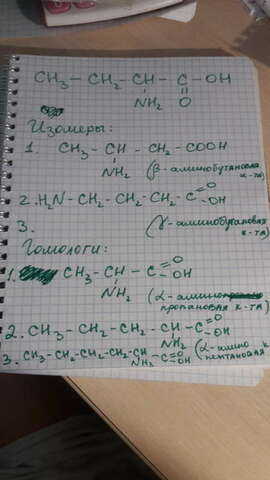 CH₃ – CH₂ – CH – C – OH
NH₂ O
Изомеры:
1. CH₃ – CH – CH₂ – COOH
NH₂ (β-аминобутановая
к-та)
2. H₂N – CH₂ – CH₂ – CH₂ – C =O
OH
3. (γ-аминобутановая
к-та)
Гомологи:
1. CH₃ – CH – C =O
OH
NH₂ (α-амино
пропановая к-та)
2. CH₃ – CH₂ – CH₂ – CH – C =O
OH
NH₂ (α-амино
3. CH₃–CH₂–CH₂–CH₂–CH – C =O
NH₂ OH
пентановая к